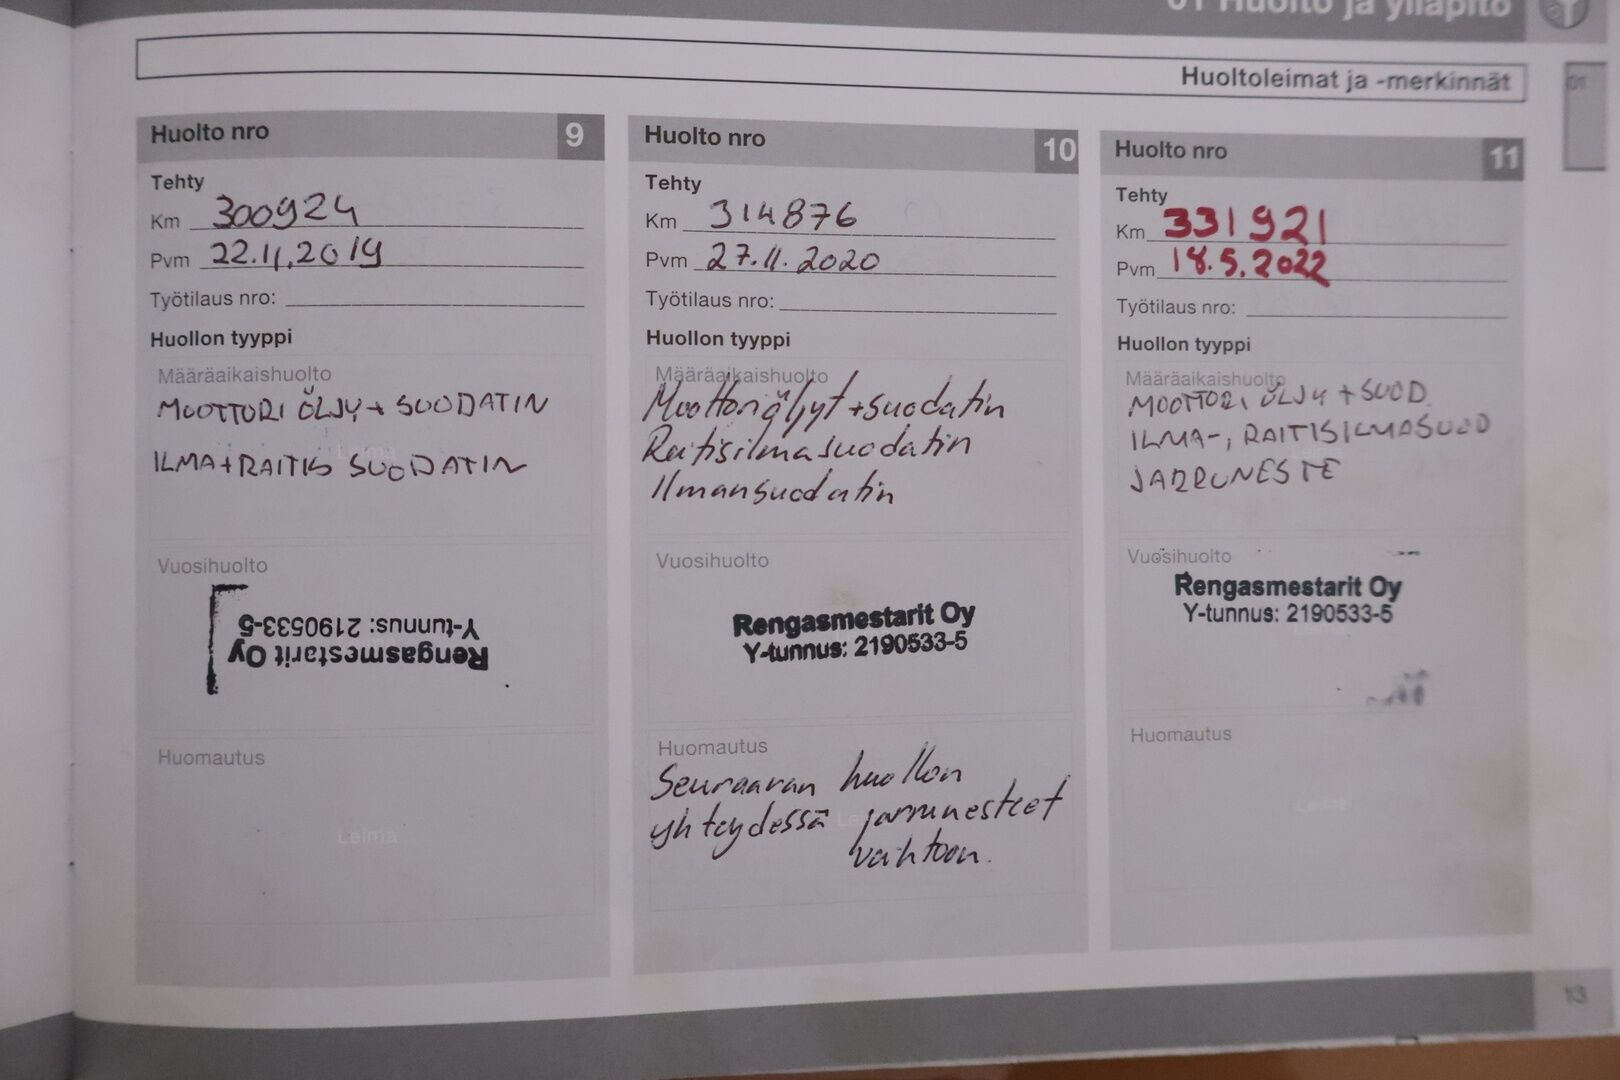 01 Huolto ja ylläpito
Huoltoleimat ja -merkinnät
01
Huolto nro 9
Tehty
Km 300924
Pvm 22.11.2019
Työtilaus nro:
Huollon tyyppi
Määräaikaishuolto
MOOTTORI ÖLJY + SUODATIN
ILMA+RAITIS SUODATIN
Vuosihuolto
Rengasmestarit Oy
Y-tunnus: 2190533-5
Huomautus
Leima
Huolto nro 10
Tehty
Km 314876
Pvm 27.11.2020
Työtilaus nro:
Huollon tyyppi
Määräaikaishuolto
Moottoriöljyt + suodatin
Raitisilmasuodatin
Ilmansuodatin
Vuosihuolto
Rengasmestarit Oy
Y-tunnus: 2190533-5
Huomautus
Seuraavan huollon
yhteydessä jarrunesteet
vaihtoon.
Huolto nro 11
Tehty
Km 331921
Pvm 18.5.2022
Työtilaus nro:
Huollon tyyppi
Määräaikaishuolto
MOOTTORI ÖLJY + SUOD.
ILMA-, RAITISILMASUOD
JARRUNESTE
Vuosihuolto
Rengasmestarit Oy
Y-tunnus: 2190533-5
Huomautus
Leima
13